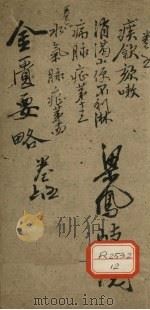 卷五
痰飲欬嗽
消渴小便不利淋
病脈症第十三
水氣脈症第十四
金匱要略
梁鳳
R2532
12